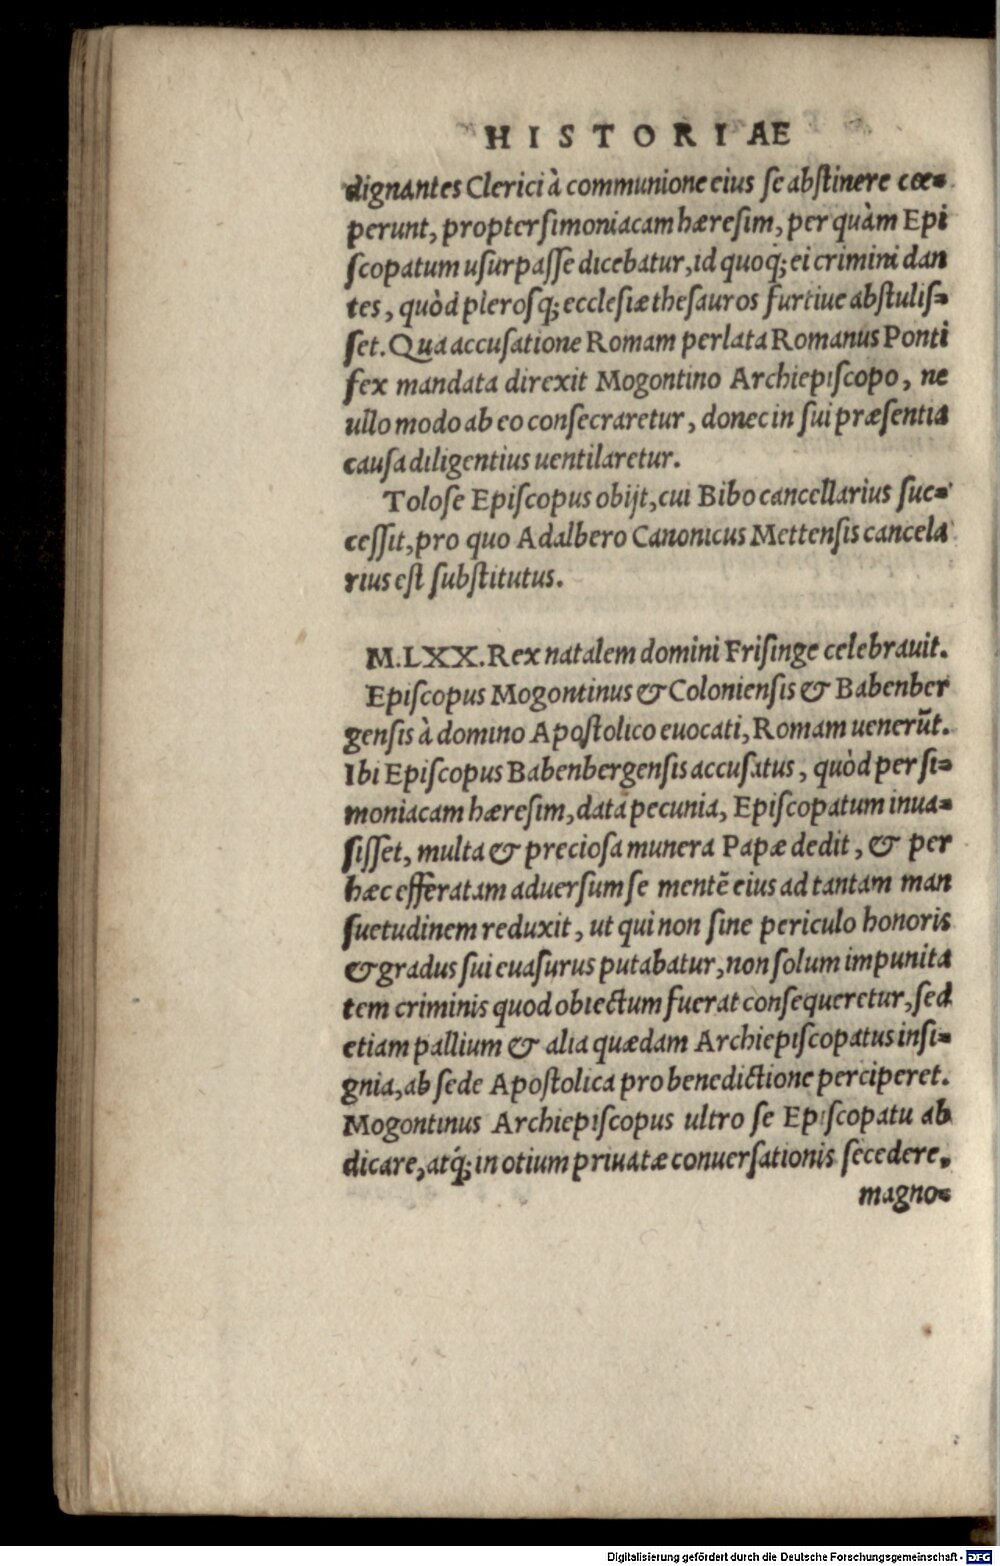 HISTORIAE
dignantes Clerici à communione eius ſe abſtinere cœ-
perunt, propter ſimoniacam hæreſim, per quàm Epi
ſcopatum uſurpaſſe dicebatur, id quoq; ei crimini dan
tes, quòd plerosq; ecclesiæ theſauros furtiue abſtuliſ-
ſet. Qua accuſatione Romam perlata Romanus Ponti
fex mandata direxit Mogontino Archiepiſcopo, ne
ullo modo ab eo conſecraretur, donec in ſui præſentia
cauſa diligentius uentilaretur.
Toloſe Epiſcopus obijt, cui Bibo cancellarius ſuc-
ceſſit, pro quo Adalbero Canonicus Mettenſis cancela
rius eſt ſubſtitutus.
M.LXX. Rex natalem domini Friſinge celebrauit.
Epiſcopus Mogontinus & Colonienſis & Babenber
genſis à domino Apoſtolico euocati, Romam uenerūt.
Ibi Epiſcopus Babenbergenſis accuſatus, quòd per ſi-
moniacam hæreſim, data pecunia, Epiſcopatum inua-
ſiſſet, multa & precioſa munera Papæ dedit, & per
hæc efferatam aduerſum ſe mentē eius ad tantam man
ſuetudinem reduxit, ut qui non ſine periculo honoris
& gradus ſui euaſurus putabatur, non ſolum impunita
tem criminis quod obiectum fuerat conſequeretur, ſed
etiam pallium & alia quædam Archiepiſcopatus inſi-
gnia, ab ſede Apoſtolica pro benedictione perciperet.
Mogontinus Archiepiſcopus ultro ſe Epiſcopatu ab
dicare, atq́; in otium priuatæ conuerſationis ſecedere,
magno-
Digitalisierung gefördert durch die Deutsche Forschungsgemeinschaft - DFG